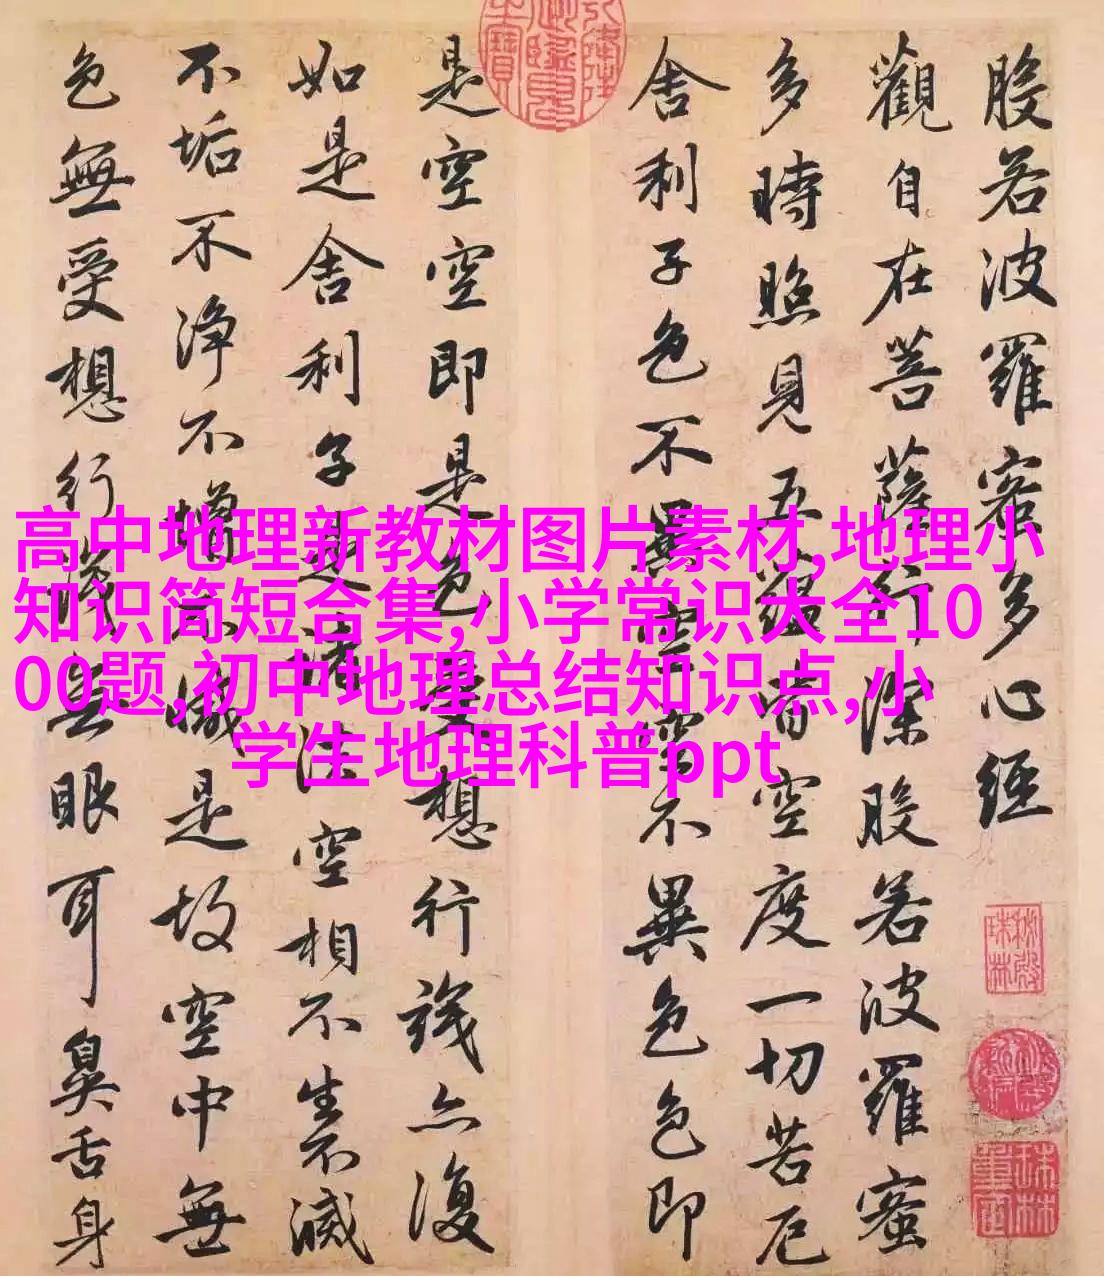 般若波羅蜜多心經
觀自在菩薩行深般若波羅蜜
多時照見五蘊皆空度一切苦厄
舍利子色不異空空不異色色即
是空空即是色受想行識亦復
如是舍利子是諸法空相不生不滅
不垢不淨不增不減是故空中無
色無受想行識無眼耳鼻舌身
高中地理新教材图片素材,地理小
知识简短合集,小学常识大全10
00题,初中地理总结知识点,小
学生地理科普ppt
秘殿
珠林